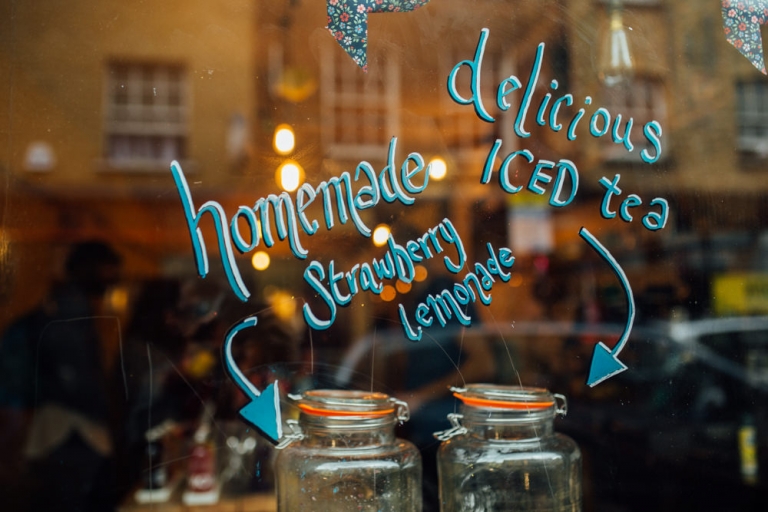 homemade
Strawberry
lemonade
delicious
ICED tea